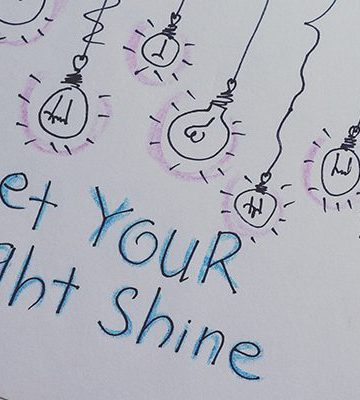 et YOUR
ght Shine